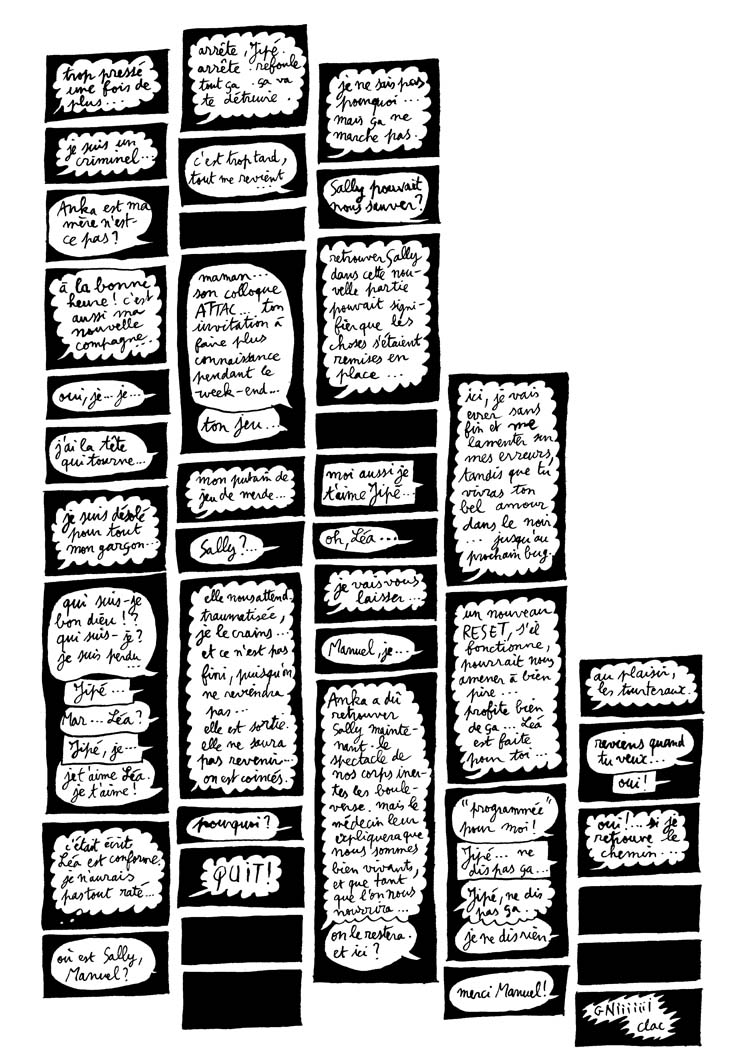 trop pressé
une fois de
plus...
je suis un
criminel...
Anka est ma
mère n'est-
ce pas?
à la bonne
heure! c'est
aussi ma
nouvelle
compagne.
oui, je... je...
j'ai la tête
qui tourne...
je suis désolé
pour tout
mon garçon...
qui suis-je
bon dieu!?
qui suis-je?
je suis perdu...
Jipé...
Mar... Léa?
Jipé, je...
je t'aime Léa.
je t'aime!
c'était écrit
Léa est conforme.
je n'aurais
pas tout raté...
où est Sally,
Manuel?
arrête, Jipé.
arrête. refoule
tout ça. ça va
te détruire.
c'est trop tard,
tout me revient
...
maman...
son colloque
ATTAC... ton
invitation à
faire plus
connaissance
pendant le
week-end...
ton jeu...
mon putain de
jeu de merde...
Sally?...
elle nous attend.
traumatisée,
je le crains...
et ce n'est pas
fini, puisqu'on
ne reviendra
pas...
elle est sortie.
elle ne saura
pas revenir...
on est coincés.
pourquoi?
QUIT!
je ne sais pas
pourquoi...
mais ça ne
marche pas.
Sally pouvait
nous sauver?
retrouver Sally
dans cette nou-
velle partie
pouvait signi-
fier que les
choses s'étaient
remises en
place...
moi aussi je
t'aime Jipé...
oh, Léa....
je vais vous
laisser...
Manuel, je...
Anka a dû
retrouver
Sally mainte-
nant. le
spectacle de
nos corps iner-
tes les boule-
verse. mais le
médecin leur
expliquera que
nous sommes
bien vivants,
et que tant
que l'on nous
nourrira...
on le restera.
et ici?
ici, je vais
errer sans
fin et me
lamenter sur
mes erreurs,
tandis que tu
vivras ton
bel amour
dans le noir
... jusqu'au
prochain bug.
un nouveau
RESET, s'il
fonctionne,
pourrait nous
amener à bien
pire...
profite bien
de ça... Léa
est faite
pour toi...
"programmée"
pour moi!
Jipé... ne
dis pas ça...
Jipé, ne dis
pas ça.
je ne dis rien.
merci Manuel!
au plaisir,
les tourtereaux.
reviens quand
tu veux...
oui!
oui!... si je
retrouve le
chemin...
GNiiiiii
clac